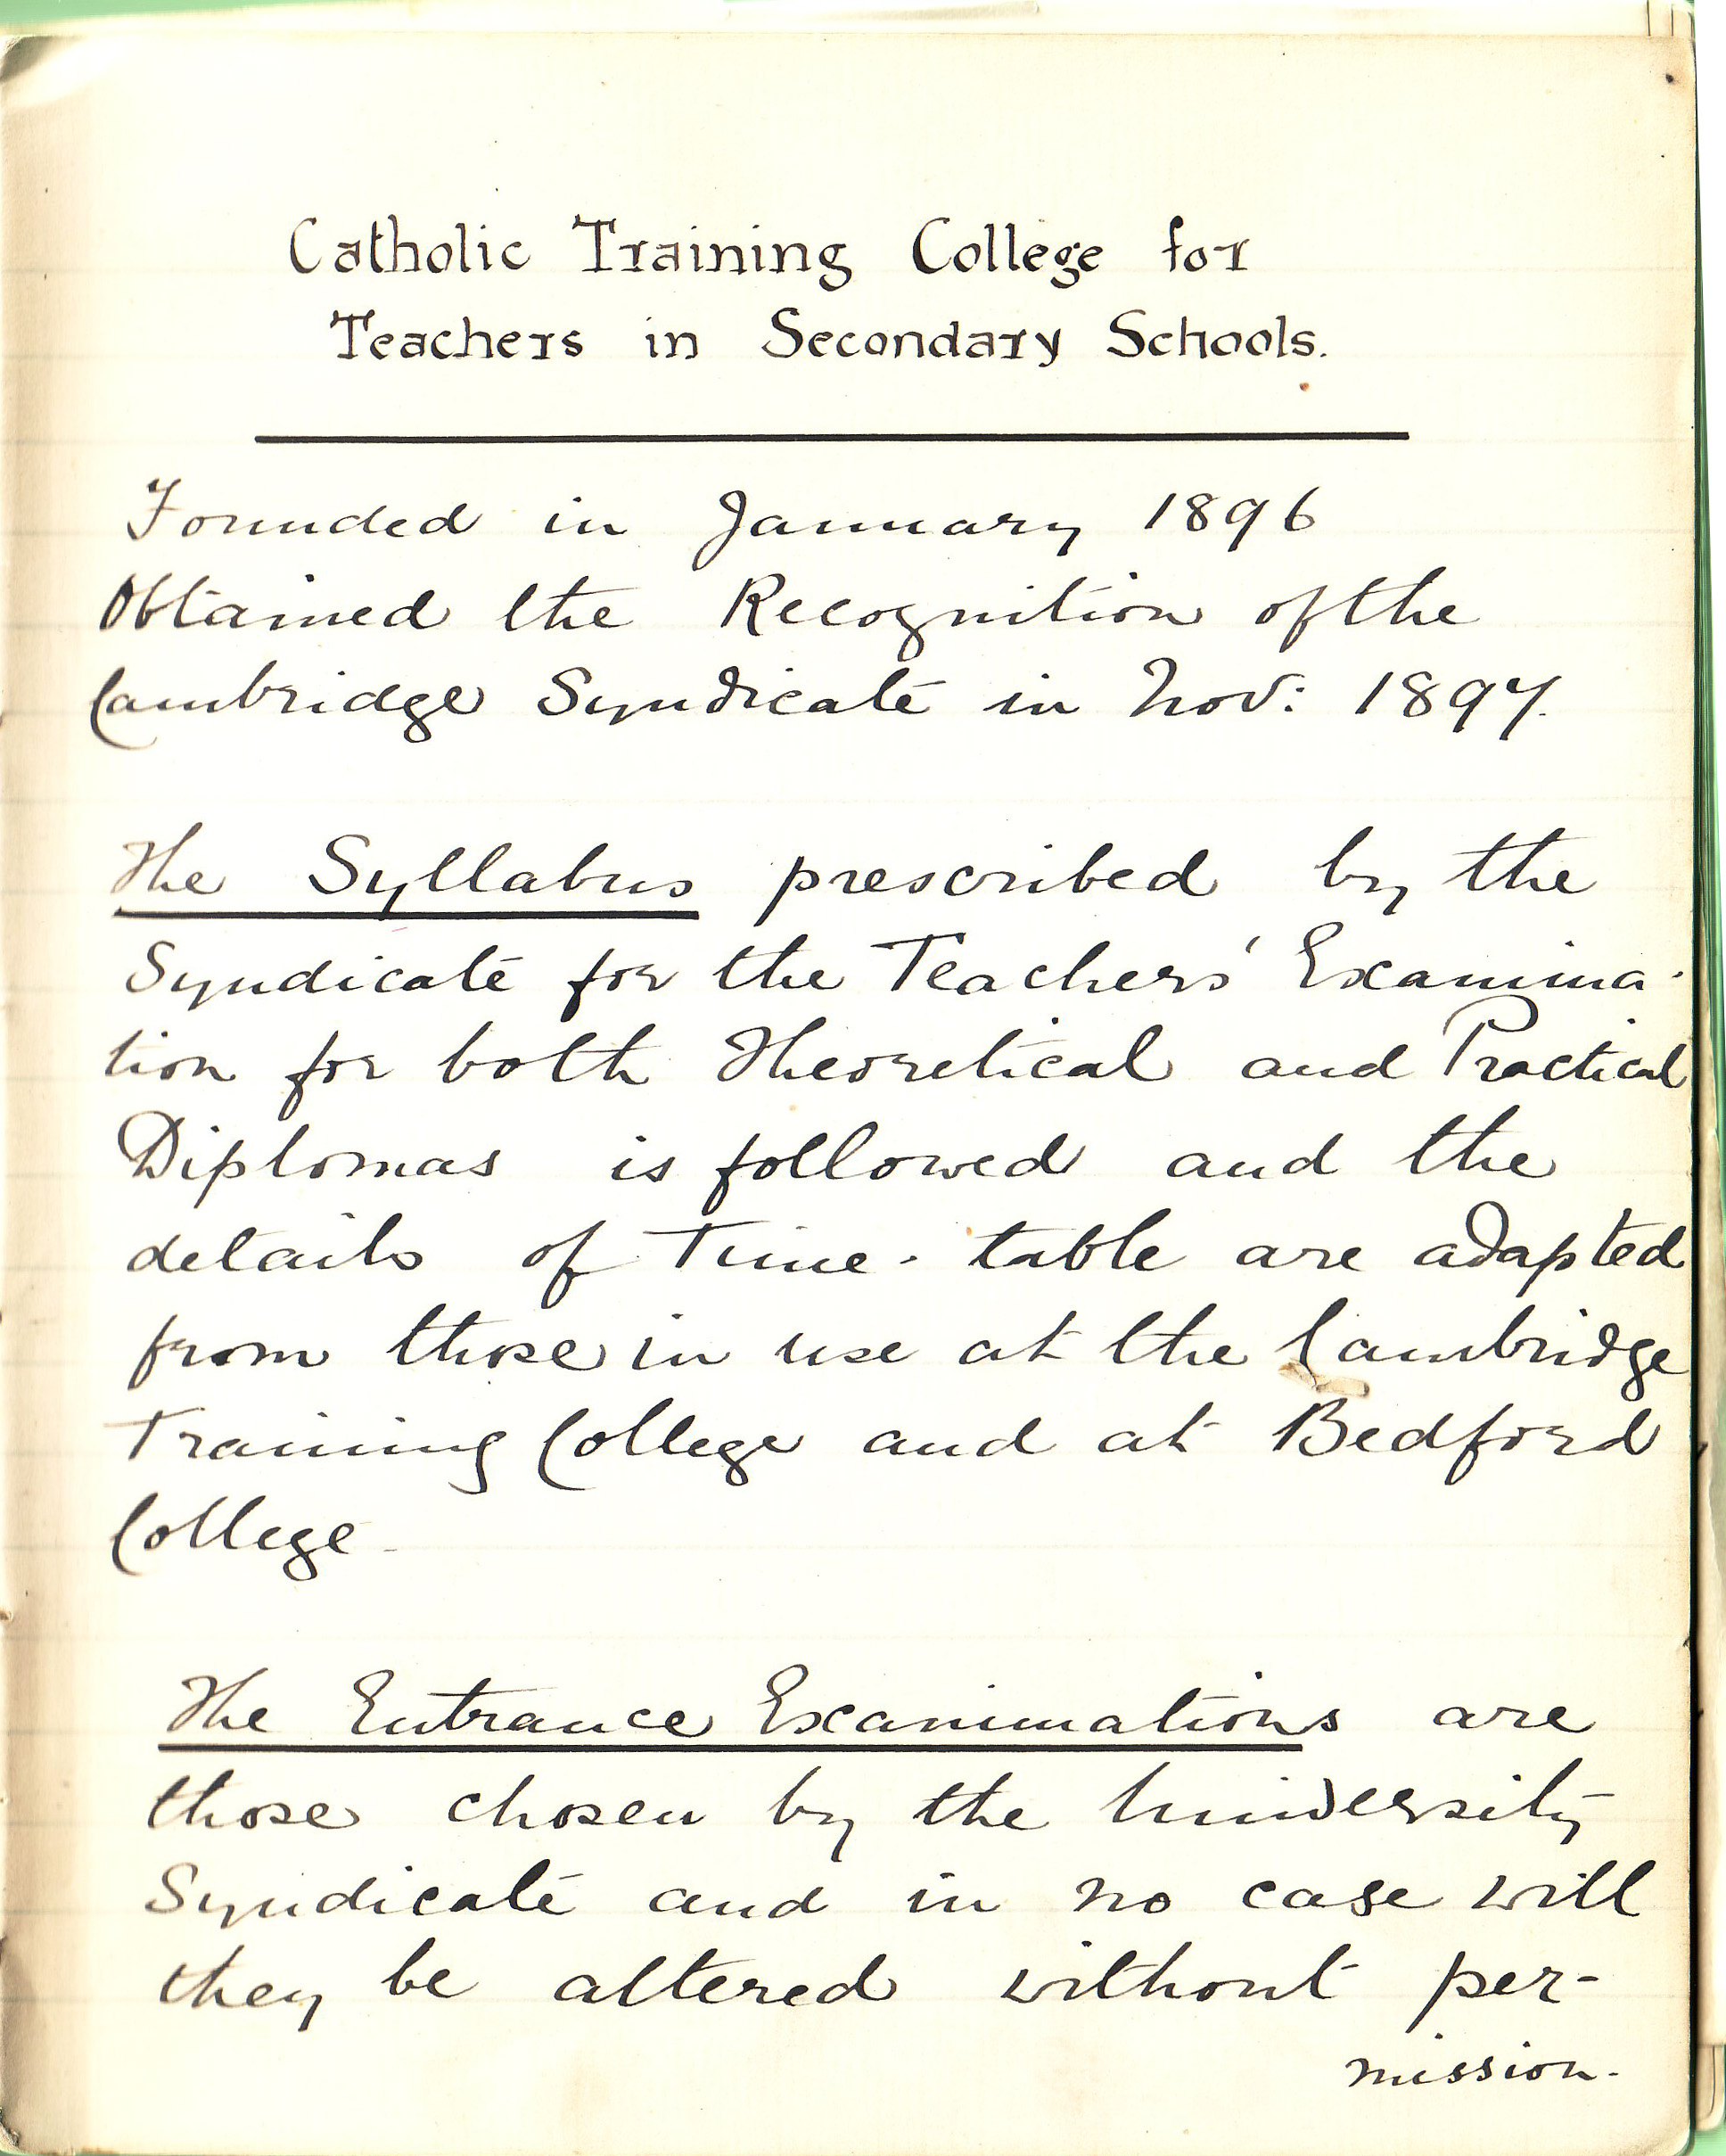 Catholic Training College for
Teachers in Secondary Schools.
Founded in January 1896
Obtained the Recognition of the
Cambridge Syndicate in Nov: 1897.
The Syllabus prescribed by the
Syndicate for the Teachers' Examina-
tion for both Theoretical and Practical
Diplomas is followed and the
details of Time-table are adapted
from those in use at the Cambridge
Training College and at Bedford
College.
The Entrance Examinations are
those chosen by the University
Syndicate and in no case will
they be altered without per-
mission.